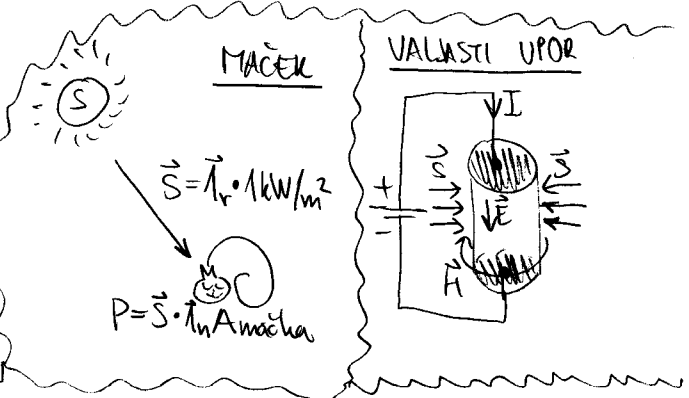 MAČEK
S
S⃗ = 1⃗ᵣ · 1kW/m²
P = S⃗ · 1⃗ₙ A mačka
VALJASTI UPOR
I
S⃗ S⃗
+
E⃗
-
H⃗